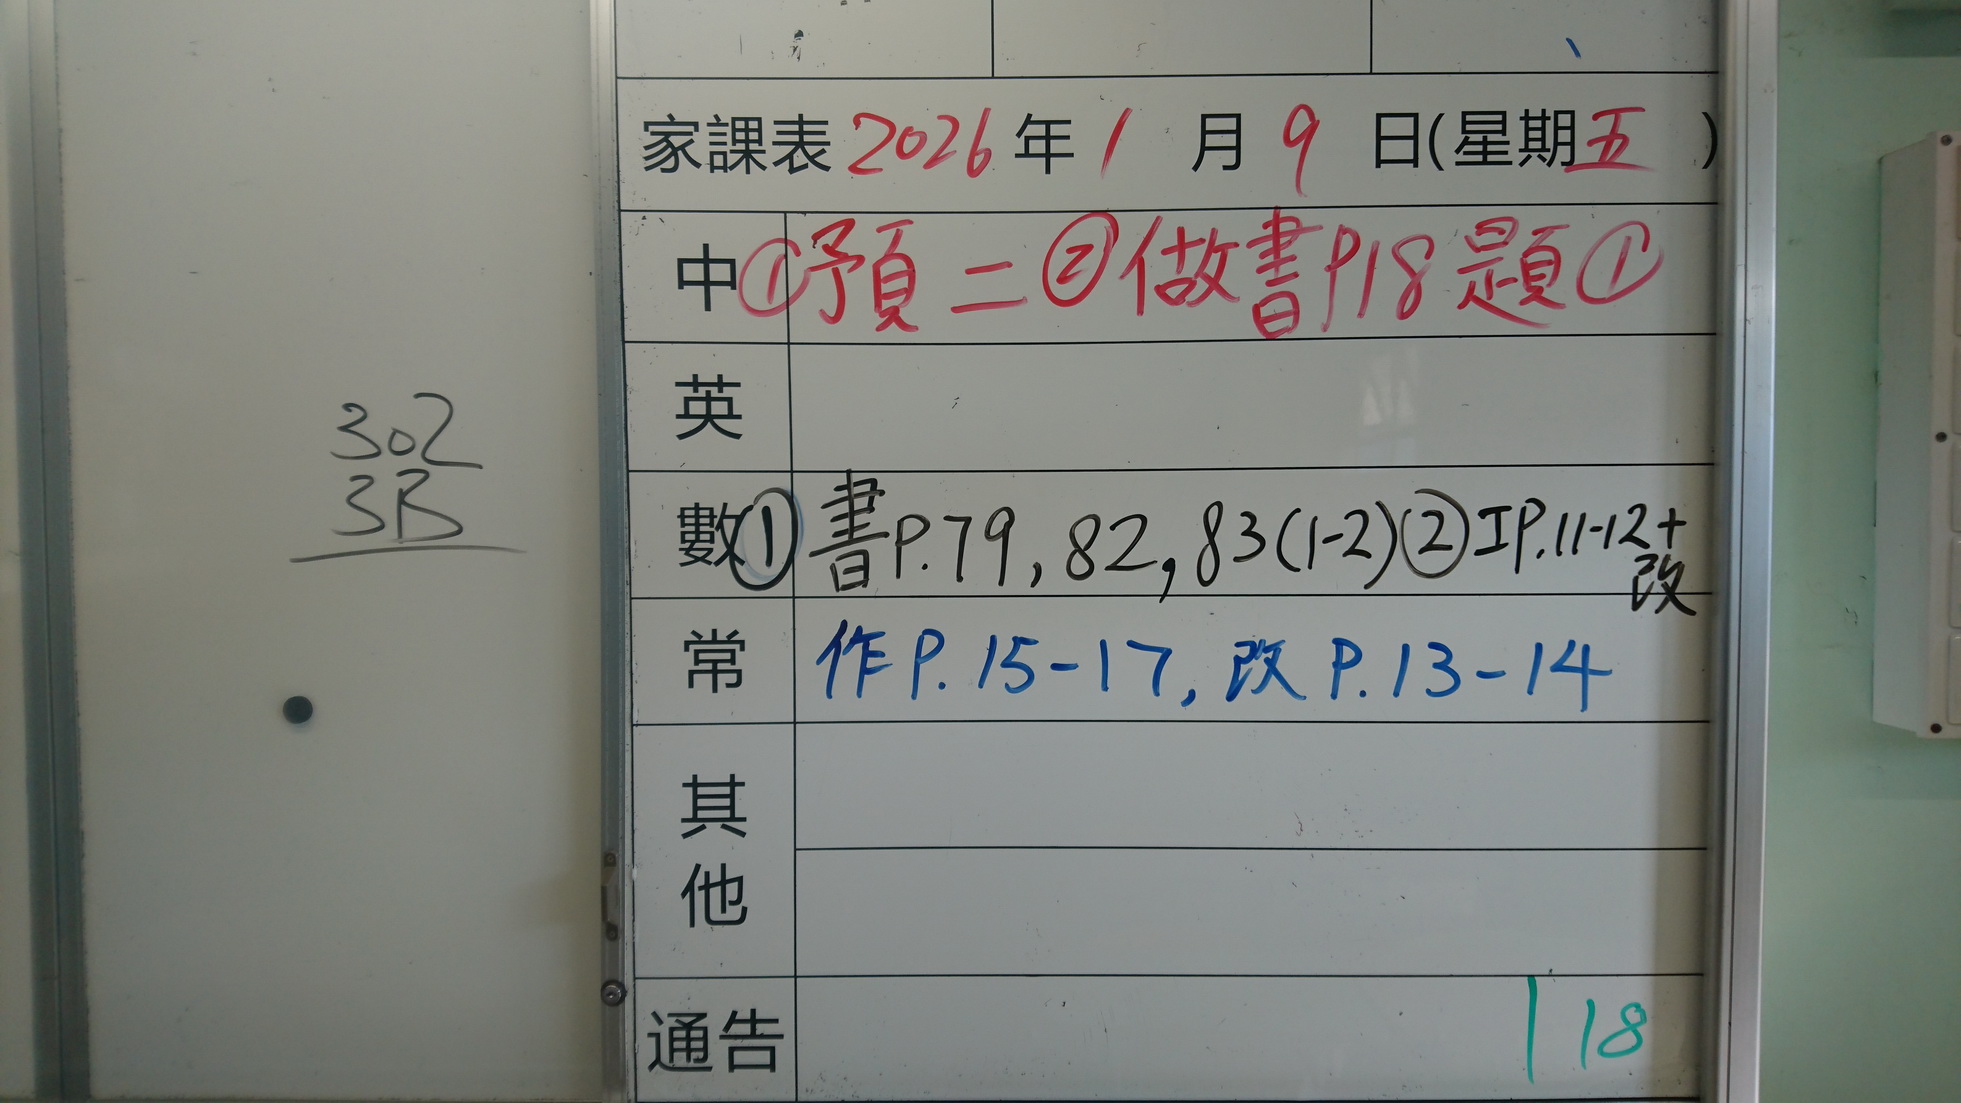 302
3B
家課表 2026 年 1 月 9 日(星期五 )
中 ①預二 ②做書P18題①
英
數 ①書P.79, 82, 83(1-2) ②工P.11-12+
改
常 作P.15-17, 改P.13-14
其
他
通告 | 18